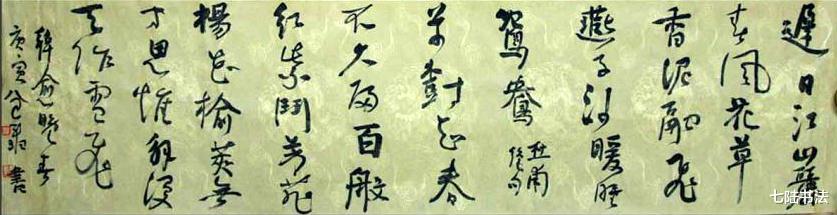 遲日江山麗
春風花草
香泥融飛
燕子沙暖睡
鴛鴦
杜甫
絕句
草樹知春
不久歸百般
紅紫鬥芳菲
楊花榆莢無
才思惟解漫
天作雪飛
韓愈晚春
庚寅書
七陆书法